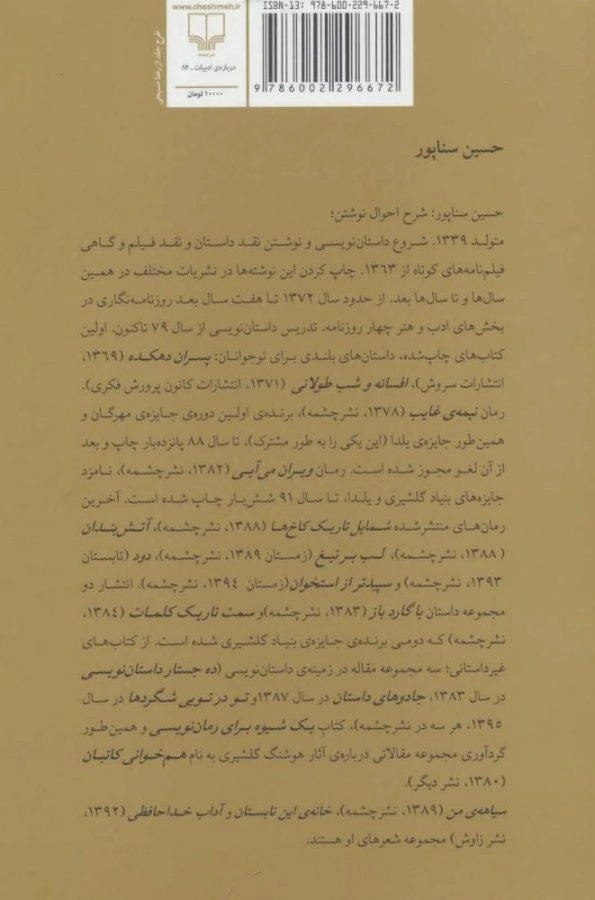 ISBN-13: 978-600-229-667-2
www.cheshmeh.ir
نشرچشمه
درباره‌ی ادبیات ـ ۸۴
۱۰۰۰۰ تومان
9 786002 296672
طرح جلد از رضا مسیحی
حسین سناپور
حسین سناپور: شرح احوال نوشتن؛
متولد ۱۳۳۹. شروع داستان‌نویسی و نوشتن نقد داستان و نقد فیلم و گاهی
فیلم‌نامه‌های کوتاه از ۱۳۶۳. چاپ کردن این نوشته‌ها در نشریات مختلف در همین
سال‌ها و تا سال‌ها بعد. از حدود سال ۱۳۷۲ تا هفت سال بعد روزنامه‌نگاری در
بخش‌های ادب و هنر چهار روزنامه. تدریس داستان‌نویسی از سال ۷۹ تاکنون. اولین
کتاب‌های چاپ‌شده، داستان‌های بلندی برای نوجوانان: پسران دهکده (۱۳۶۹،
انتشارات سروش)، افسانه و شب طولانی (۱۳۷۱، انتشارات کانون پرورش فکری).
رمان نیمه‌ی غایب (۱۳۷۸، نشرچشمه)، برنده‌ی اولین دوره‌ی جایزه‌ی مهرگان و
همین‌طور جایزه‌ی یلدا (این یکی را به طور مشترک)، تا سال ۸۸ پانزده‌بار چاپ و بعد
از آن لغو مجوز شده است. رمان ویران می‌آیی (۱۳۸۲، نشرچشمه)، نامزد
جایزه‌های بنیاد گلشیری و یلدا، تا سال ۹۱ شش‌بار چاپ شده است. آخرین
رمان‌های منتشرشده شمایل تاریک کاخ‌ها (۱۳۸۸، نشرچشمه)، آتش‌بندان
(۱۳۸۸، نشرچشمه)، لب بر تیغ (زمستان ۱۳۸۹، نشرچشمه)، دود (تابستان
۱۳۹۳، نشرچشمه) و سپیدتر از استخوان(زمستان ۱۳۹۴، نشرچشمه). انتشار دو
مجموعه داستان با گارد باز (۱۳۸۳، نشرچشمه)و سمت تاریک کلمات (۱۳۸۴،
نشرچشمه) که دومی برنده‌ی جایزه‌ی بنیاد گلشیری شده است. از کتاب‌های
غیرداستانی؛ سه مجموعه مقاله در زمینه‌ی داستان‌نویسی (ده جستار داستان‌نویسی
در سال ۱۳۸۳، جادوهای داستان در سال ۱۳۸۷و تو در تویی شگردها در سال
۱۳۹۵، هر سه در نشرچشمه)، کتاب یک شیوه برای رمان‌نویسی و همین‌طور
گردآوری مجموعه مقالاتی درباره‌ی آثار هوشنگ گلشیری به نام هم‌خوانی کاتبان
(۱۳۸۰، نشر دیگر).
سیاهه‌ی من (۱۳۸۹، نشرچشمه)، خانه‌ی این تابستان و آداب خداحافظی (۱۳۹۲،
نشر زاوش) مجموعه شعرهای او هستند.